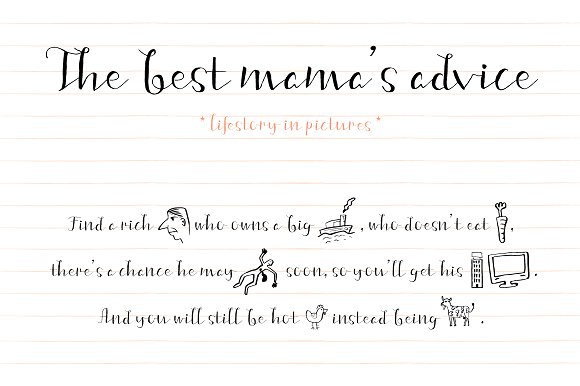 The best mama's advice
* lifestory in pictures *
Find a rich who owns a big , who doesn't eat ,
there's a chance he may soon, so you'll get his .
And you will still be hot instead being .